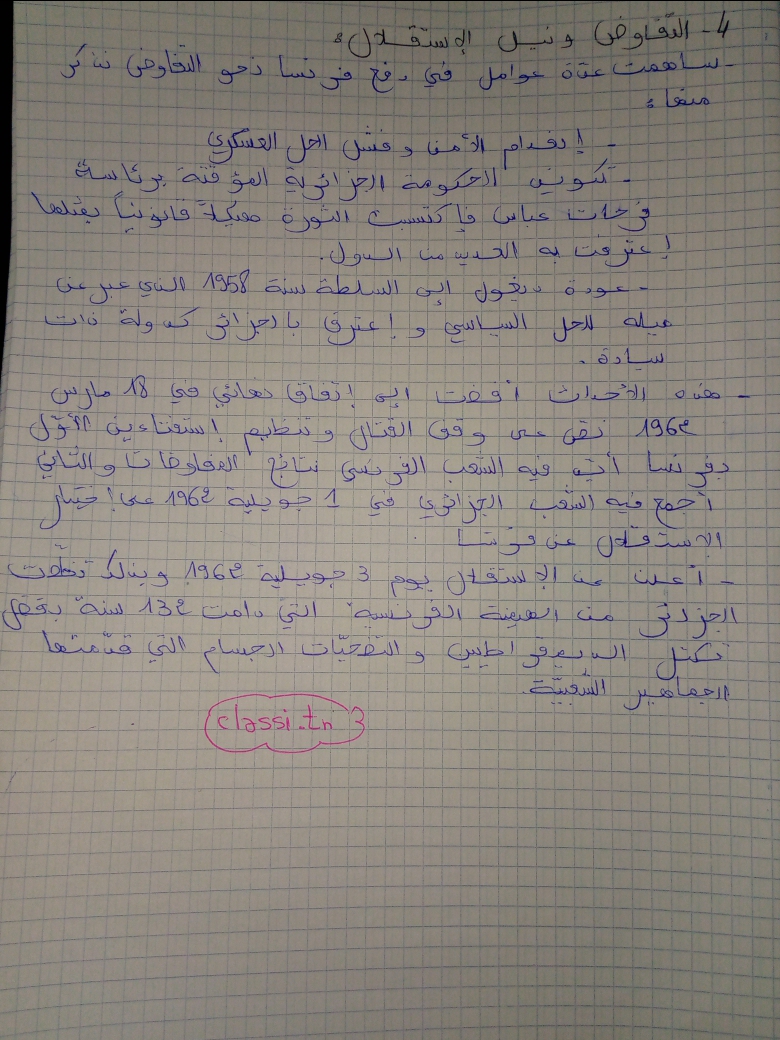 4- التّفاوض ونيل الإستقلال:
- ساهمت عدّة عوامل في دفع فرنسا نحو التفاوض نذكر
منها:
- إنعدام الأمن وفشل الحل العسكري
- تكوين الحكومة الجزائرية المؤقتة برئاسة
فرحات عباس فإكتسبت الثورة هيكلاً قانونياً يمثلها
إعترفت به العديد من الدول.
- عودة ديغول إلى السلطة سنة 1958 الذي عبر عن
ميله للحل السياسي و إعترف بالجزائر كدولة ذات
سيادة.
- هذه الأحداث أفضت إلى إتفاق نهائي في 18 مارس
1962 نصّ على وقف القتال وتنظيم إستفتاءين الأوّل
بفرنسا أيّد فيه الشعب الفرنسي نتائج المفاوضات والثاني
أجمع فيه الشّعب الجزائري في 1 جويلية 1962 على إختيار
الاستقلال عن فرنسا
- أعلن عن الإستقلال يوم 3 جويلية 1962 وبذلك تخلّصت
الجزائر من الهيمنة الفرنسية التي دامت 132 سنة بفضل
تكتل الديمقراطيين والتضحيّات الجسام التي قدّمتها
الجماهير الشّعبيّة.
classi.tn 3